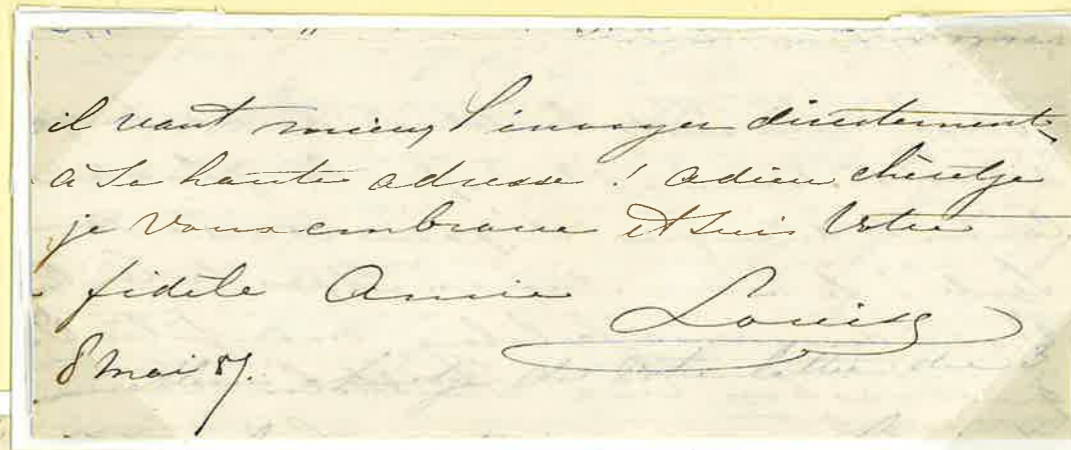 il vaut mieux l'envoyer directement
à Sa haute adresse ! adieu chèretje
je Vous embrasse et suis Votre
fidèle Amie Louise
8 mai 57.